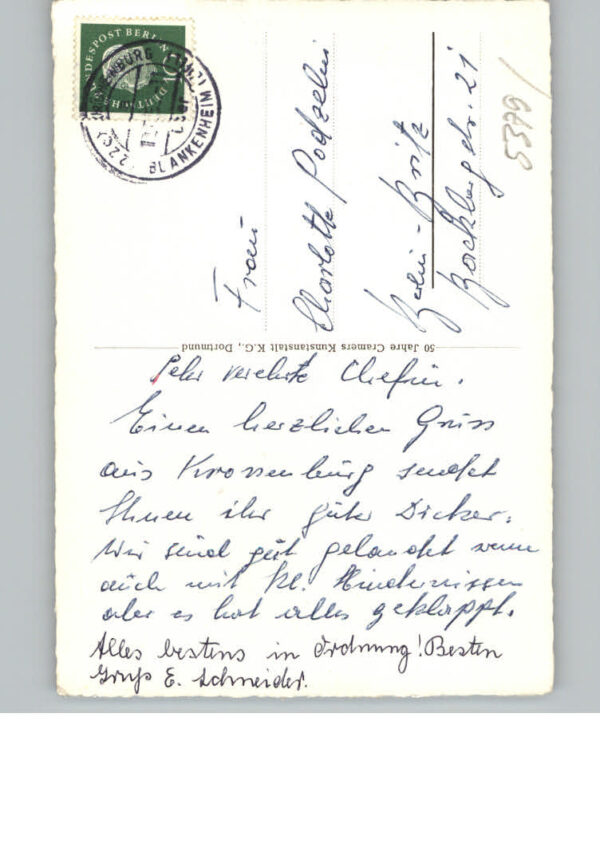 DEUTSCHE BUNDESPOST BERLIN
BLANKENHEIM
5379
Frau
Charlotte Podzelni
Berlin-Britz
50 Jahre Cramers Kunstanstalt K.G., Dortmund
Sehr verehrte Chefin.
Einen herzlichen Gruss
aus Kronenburg sendet
Ihnen ihr guter Dicker.
Wir sind gut gelandet wenn
auch mit kl. Hindernissen
aber es hat alles geklappt.
Alles bestens in Ordnung! Besten
Gruß E. Schneider.